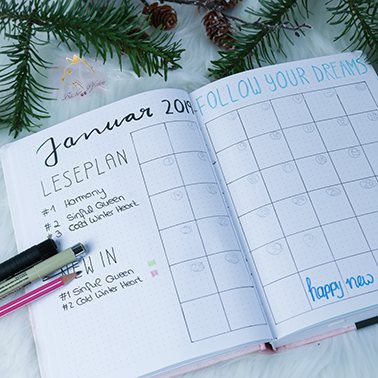 Januar 2019
LESEPLAN
#1 Harmony
#2 Sinful Queen
#3 Cold Winter Heart
NEW IN
#1 Sinful Queen
#2 Cold Winter Heart
FOLLOW YOUR DREAMS
happy new